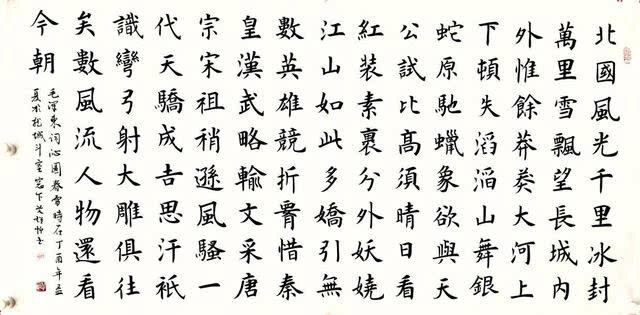 北國風光千里冰封
萬里雪飄望長城內
外惟餘莽莽大河上
下頓失滔滔山舞銀
蛇原馳蠟象欲與天
公試比高須晴日看
紅裝素裹分外妖嬈
江山如此多嬌引無
數英雄競折腰惜秦
皇漢武略輸文采唐
宗宋祖稍遜風騷一
代天驕成吉思汗衹
識彎弓射大雕俱往
矣數風流人物還看
今朝
毛澤東词沁園春雪時在丁酉年孟
夏於相城斗室窗下